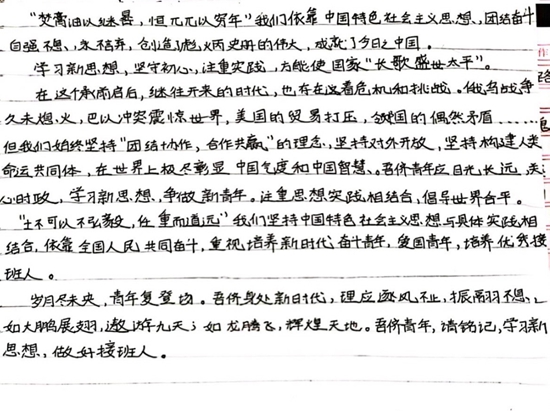 “焚膏油以继晷，恒兀兀以穷年”我们依靠中国特色社会主义思想、团结奋斗
自强不息、永不言弃，创造了彪炳史册的伟大，成就了今日之中国。
学习新思想，坚守初心，注重实践，方能使国家“长歌盛世太平”。
在这个承前启后，继往开来的时代，也存在这着危机和挑战。俄乌战争
久未熄火，巴以冲突震惊世界，美国的贸易打压、国的偶然矛盾……
但我们始终坚持“团结协作，合作共赢”的理念，坚持对外开放，坚持构建人类
命运共同体，在世界上极尽彰显中国气度和中国智慧、吾侪青年应目光长远，关
心时政，学习新思想、争做新青年。注重思想实践相结合，倡导世界合平。
“士不可以不弘毅，任重而道远”我们坚持中国特色社会主义思想与具体实践相
结合，依靠全国人民共同奋斗，重视培养新时代奋斗青年，爱国青年，培养优秀接
班人。
岁月尽未央，青年复登场。吾侪身处新时代，理应逐风不止，振翮不息、
如大鹏展翅，遨游九天；如龙腾飞，辉煌天地。吾侪青年，请铭记，学习新
思想，做好接班人。